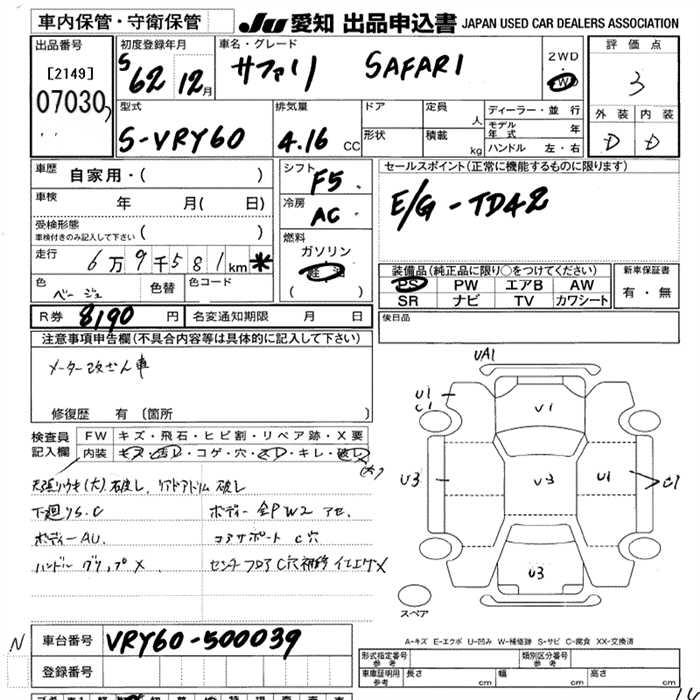 車内保管・守衛保管 JU 愛知 出品申込書 JAPAN USED CAR DEALERS ASSOCIATION
出品番号 初度登録年月 車名・グレード 2WD 評価点
[2149] S62 12月 サファリ SAFARI 4WD 3
07030
型式 排気量 ドア 定員 人 ディーラー・並行 外装 内装
S-VRY60 4.16 CC 形状 積載 kg モデル年式 年 D D
ハンドル 左・右
車歴 自家用・( ) シフト F5 セールスポイント(正常に機能するものに限ります)
車検 年 月( 日) 冷房 AC E/G - TD42
受検形態 ( )
車検付きのみ記入して下さい
燃料
走行 6万9千581km * ガソリン
軽油
( )
装備品(純正品に限り○をつけてください) 新車保証書
色 ベージュ 色替 色コード PS PW エアB AW 有・無
SR ナビ TV カワシート
R券 8190 円 名変通知期限 月 日 後日品
注意事項申告欄(不具合内容等は具体的に記入して下さい)
メーター改ざん車
修復歴 有 (箇所 )
UA1
U1
C1
U1
検査員記入欄 FW キズ・飛石・ヒビ割・リペア跡・X要
内装 キズ・汚レ・コゲ・穴・スレ・キレ・破レ
(大)
U3 U3 U1 C1
天張りウキ(大) 破レ、リアドアトリム 破レ
下廻りS.C ボディー 全PW2 アセ
ボディーAU コアサポート C穴
ハンドル グリップX センターフロアC穴補修
U3
スペア
A-キズ E-エクボ U-凹み W-補修跡 S-サビ C-腐食 XX-交換済
N 車台番号 VRY60-500039
登録番号
形式指定番号 参考 類別区分番号 参考
車庫証明用 参考 長さ cm 幅 cm 高さ cm